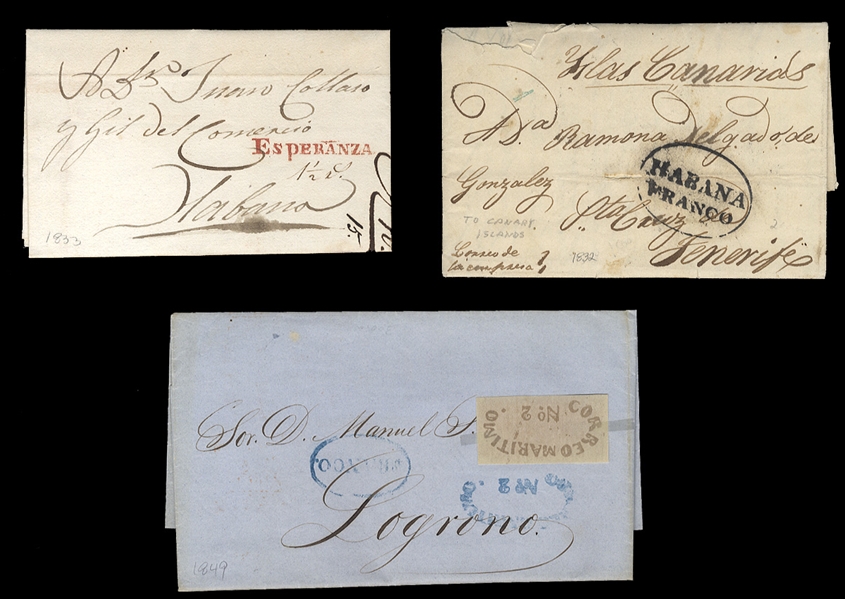 A Dn. Juan Collaso
y Gil del Comercio
ESPERANZA
1½ rs.
Habana
1833
15.
Yslas Canarias
A Da. Ramona Delgado, de
Gonzalez
HABANA
FRANCO
Sta. Cruz de
TO CANARY
ISLANDS
Tenerife
Correo de
la empresa
1832
2
Sor. D. Manuel
CORREO MARITIMO
No. 2
FRANCO.
No. 2
Logrono.
1849